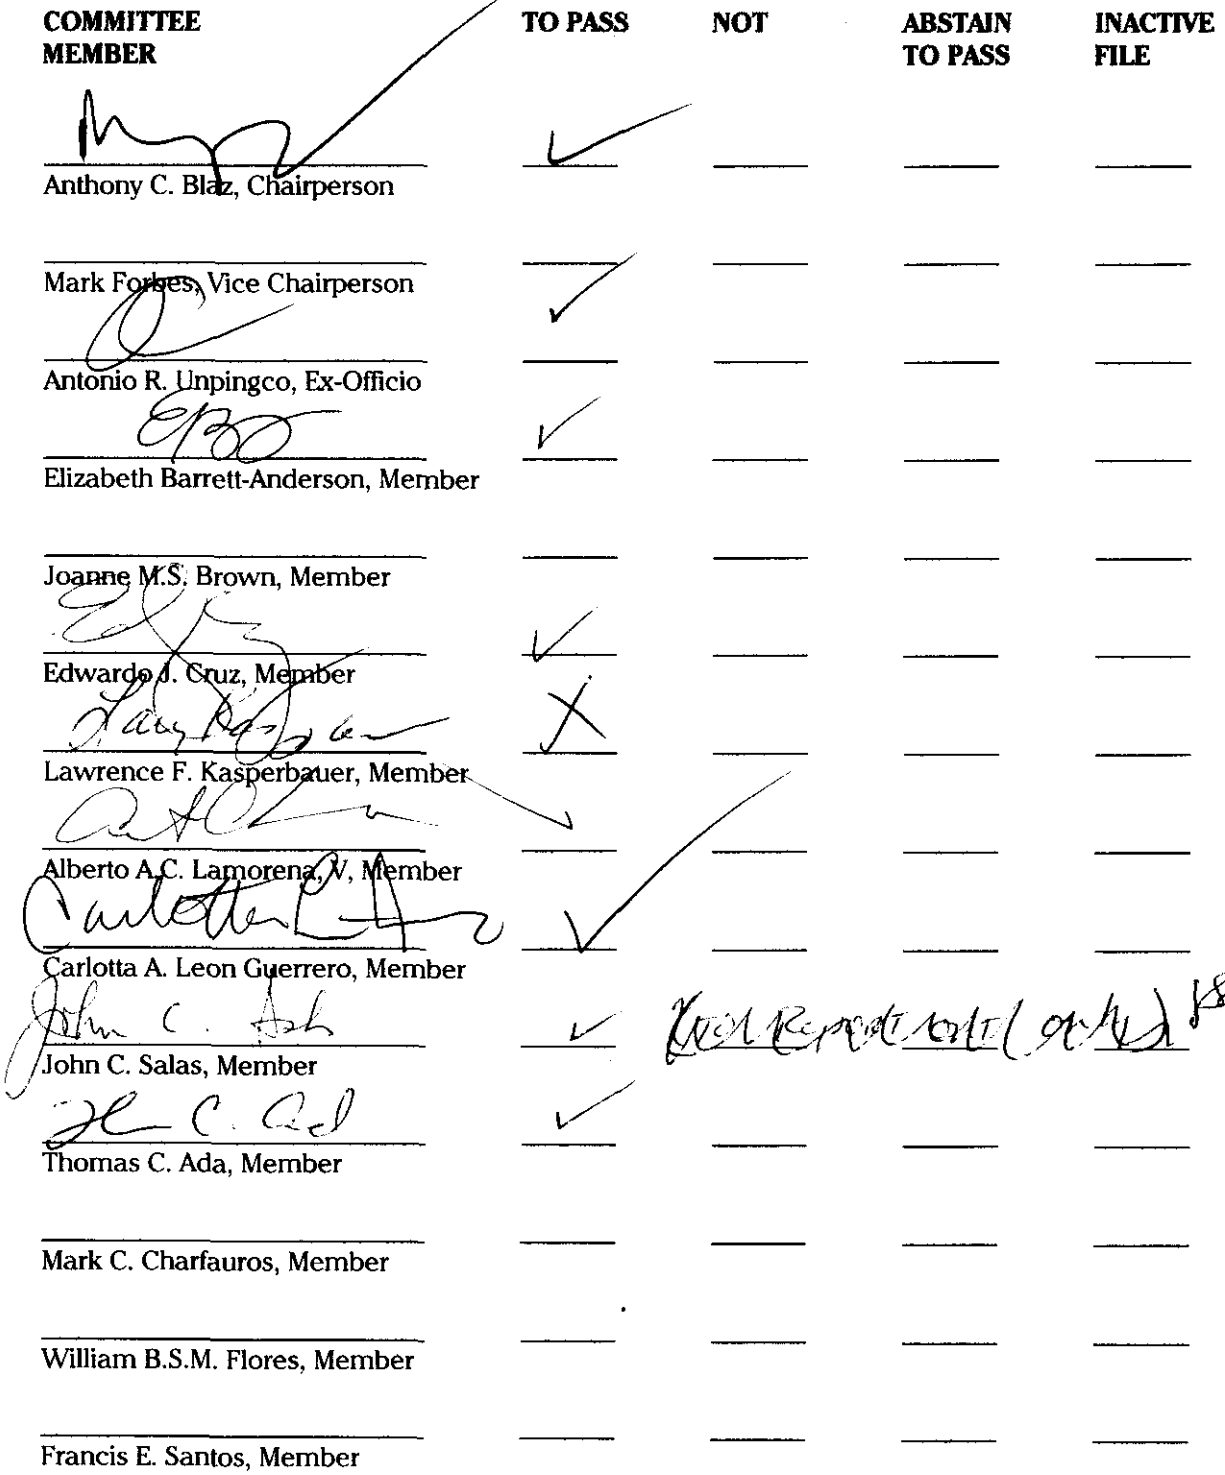 COMMITTEE MEMBER TO PASS NOT ABSTAIN TO PASS INACTIVE FILE
Anthony C. Blaz, Chairperson
Mark Forbes, Vice Chairperson
Antonio R. Unpingco, Ex-Officio
Elizabeth Barrett-Anderson, Member
Joanne M.S. Brown, Member
Edwardo J. Cruz, Member
Lawrence F. Kasperbauer, Member
Alberto A.C. Lamorena, V, Member
Carlotta
Carlotta A. Leon Guerrero, Member
John C.
John C. Salas, Member
Thomas C. Ada, Member
Mark C. Charfauros, Member
William B.S.M. Flores, Member
Francis E. Santos, Member